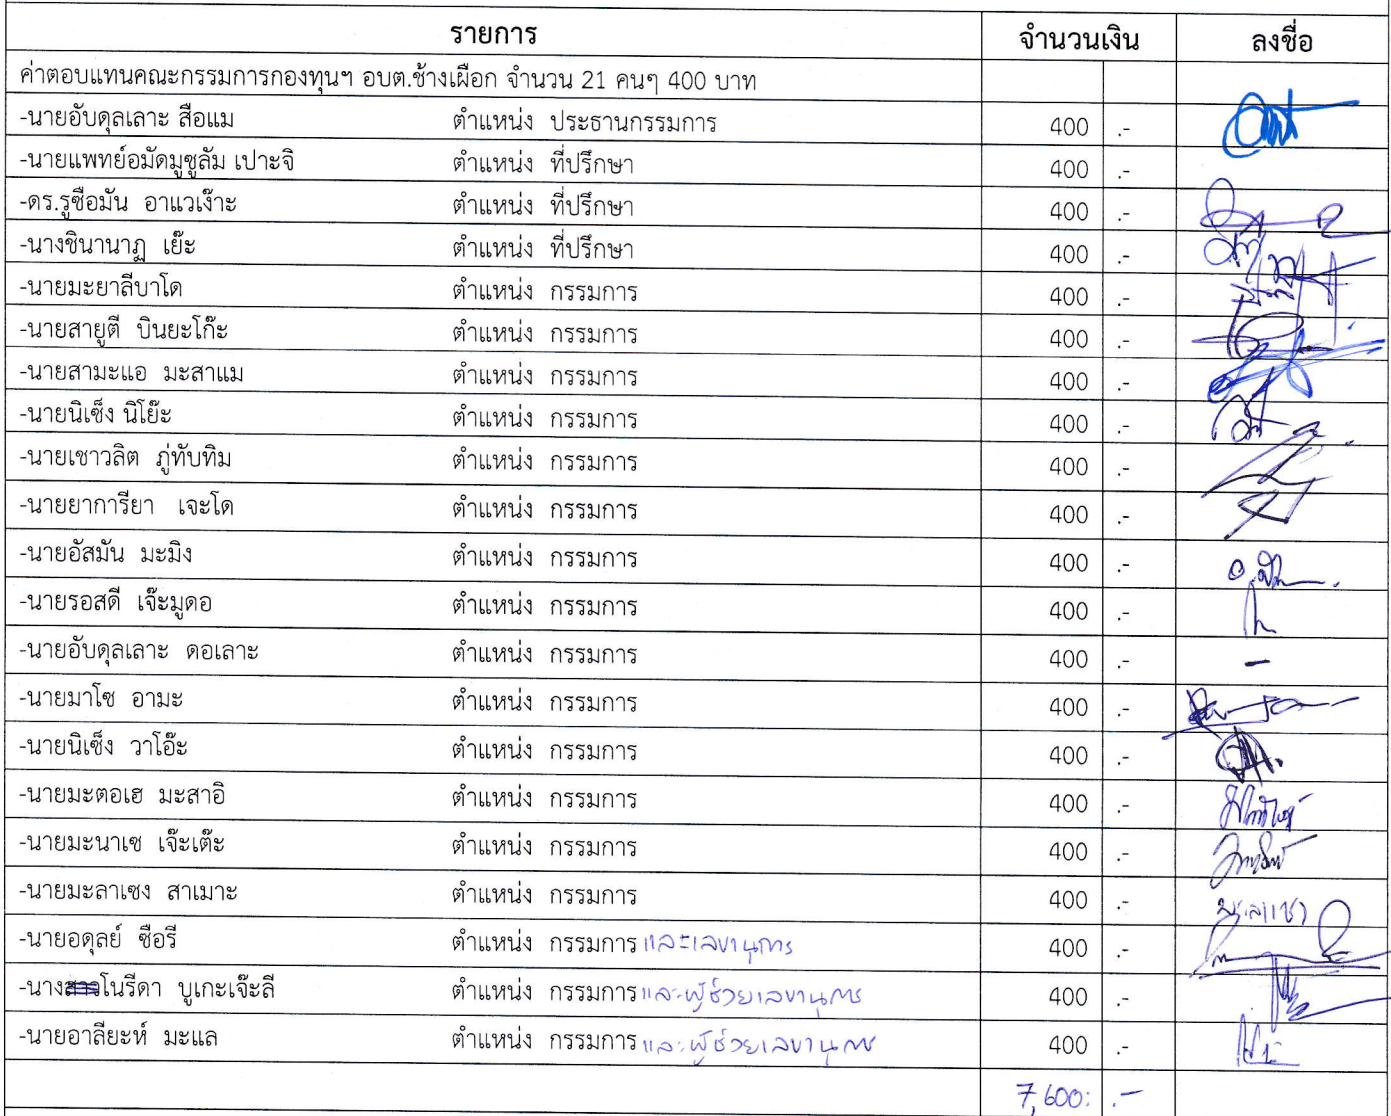 รายการ จำนวนเงิน ลงชื่อ
ค่าตอบแทนคณะกรรมการกองทุนฯ อบต.ช้างเผือก จำนวน 21 คนๆ 400 บาท
-นายอับดุลเลาะ สือแม ตำแหน่ง ประธานกรรมการ 400 .-
-นายแพทย์อมัดมูซูลัม เปาะจิ ตำแหน่ง ที่ปรึกษา 400 .-
-ดร.รูซือมัน อาแวเง๊าะ ตำแหน่ง ที่ปรึกษา 400 .-
-นางชินานาฏ เย๊ะ ตำแหน่ง ที่ปรึกษา 400 .-
-นายมะยาลีบาโด ตำแหน่ง กรรมการ 400 .-
-นายสายูตี บินยะโก๊ะ ตำแหน่ง กรรมการ 400 .-
-นายสามะแอ มะสาแม ตำแหน่ง กรรมการ 400 .-
-นายนิเซ็ง นิโย๊ะ ตำแหน่ง กรรมการ 400 .-
-นายเชาวลิต ภู่ทับทิม ตำแหน่ง กรรมการ 400 .-
-นายยาการียา เจะโด ตำแหน่ง กรรมการ 400 .-
-นายอัสมัน มะมิง ตำแหน่ง กรรมการ 400 .-
-นายรอสดี เจ๊ะมูดอ ตำแหน่ง กรรมการ 400 .-
-นายอับดุลเลาะ ดอเลาะ ตำแหน่ง กรรมการ 400 .- -
-นายมาโซ อามะ ตำแหน่ง กรรมการ 400 .-
-นายนิเซ็ง วาโอ๊ะ ตำแหน่ง กรรมการ 400 .-
-นายมะตอเฮ มะสาอิ ตำแหน่ง กรรมการ 400 .-
-นายมะนาเซ เจ๊ะเต๊ะ ตำแหน่ง กรรมการ 400 .-
-นายมะลาเซง สาเมาะ ตำแหน่ง กรรมการ 400 .-
-นายอดุลย์ ซือรี ตำแหน่ง กรรมการและเลขานุการ 400 .-
-นางสาวโนรีดา บูเกะเจ๊ะลี ตำแหน่ง กรรมการและผู้ช่วยเลขานุการ 400 .-
-นายอาลียะห์ มะแล ตำแหน่ง กรรมการและผู้ช่วยเลขานุการ 400 .-
7,600: .-